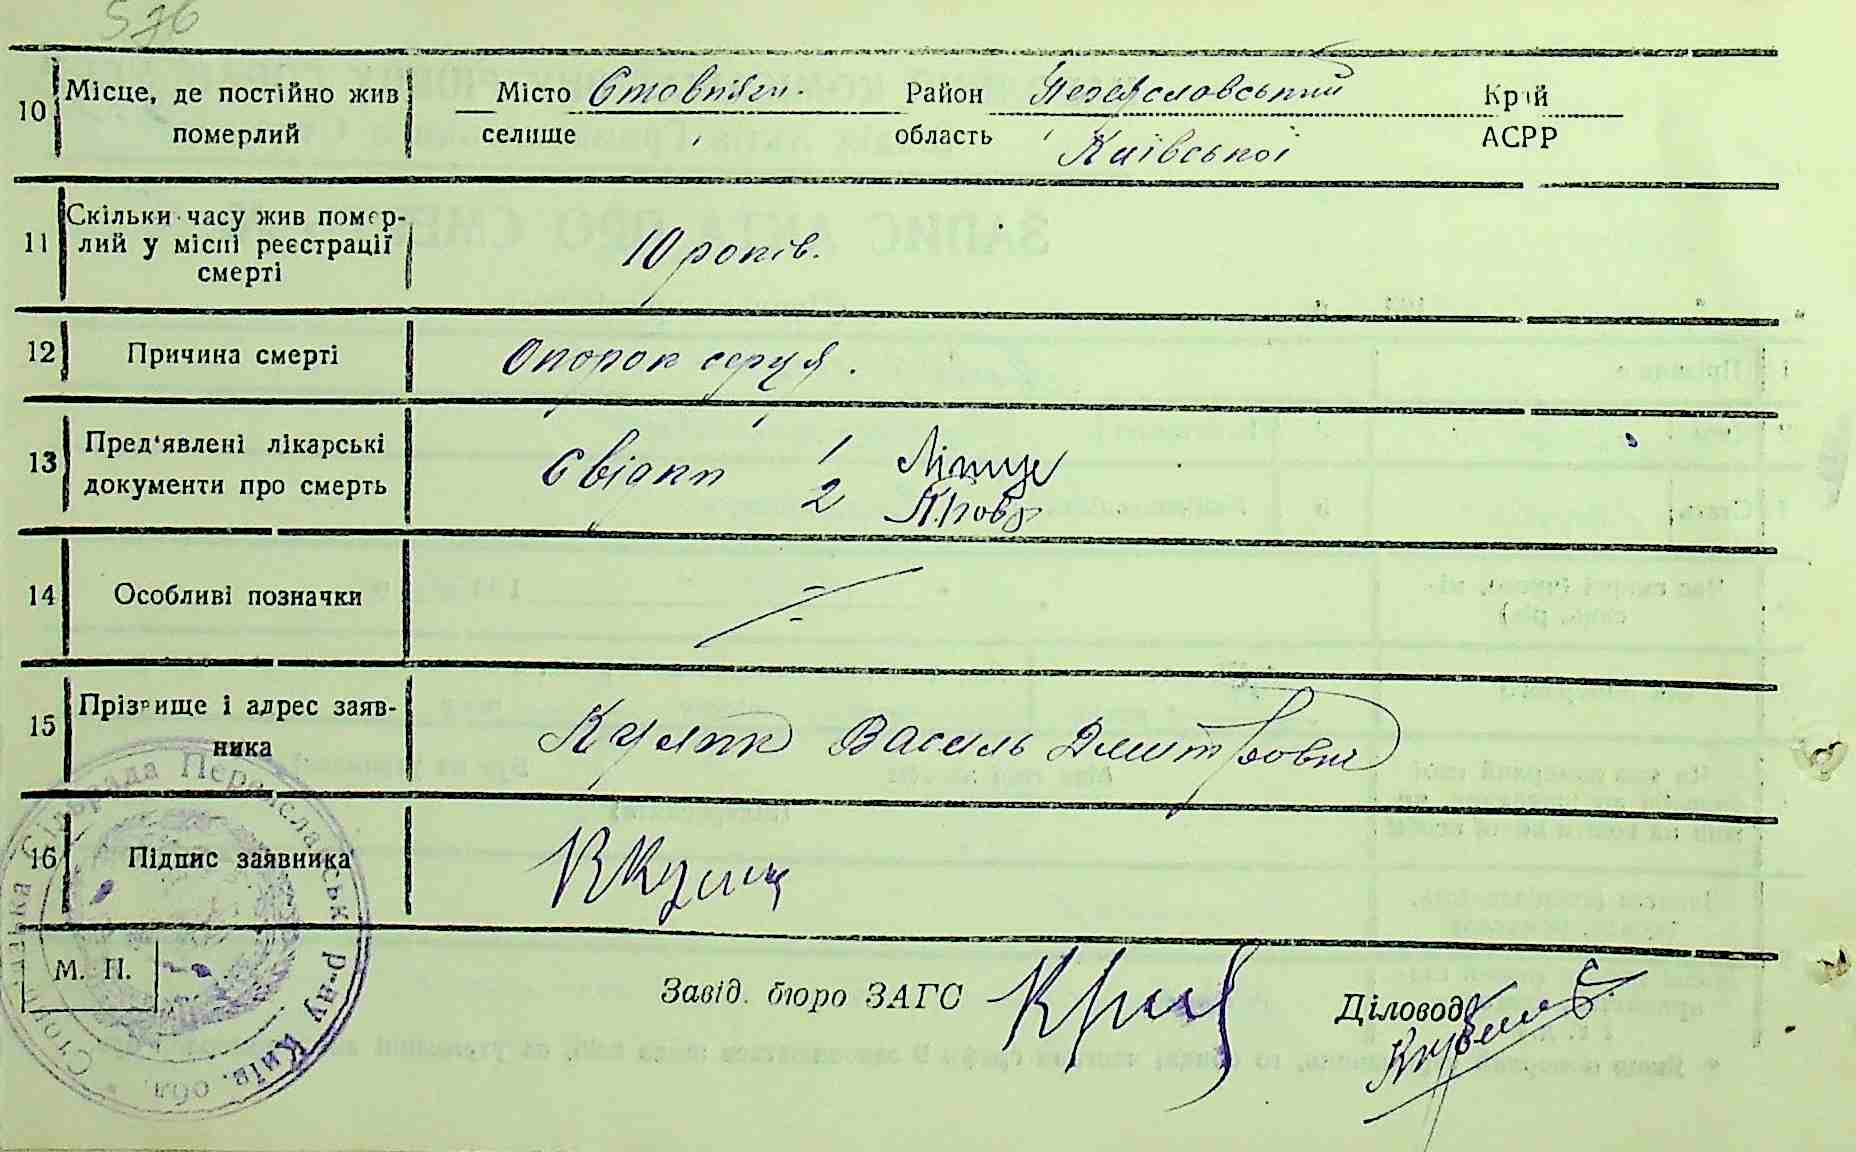 576
10 Місце, де постійно жив Місто Стовпяги. Район Переяславський Край
померлий селище область Київської АСРР
11 Скільки часу жив помер-
лий у місці реєстрації 10 років.
смерті
12 Причина смерті Опорок серця.
13 Пред'явлені лікарські Свідки 1
документи про смерть 2
14 Особливі позначки
15 Прізвище і адрес заяв-
ника Кулик Василь Дмитрович
16 Підпис заявника ВКулик
М. П.
Завід. бюро ЗАГС Діловод
Сільрада Переяславськ. р-ну Київ. обл.